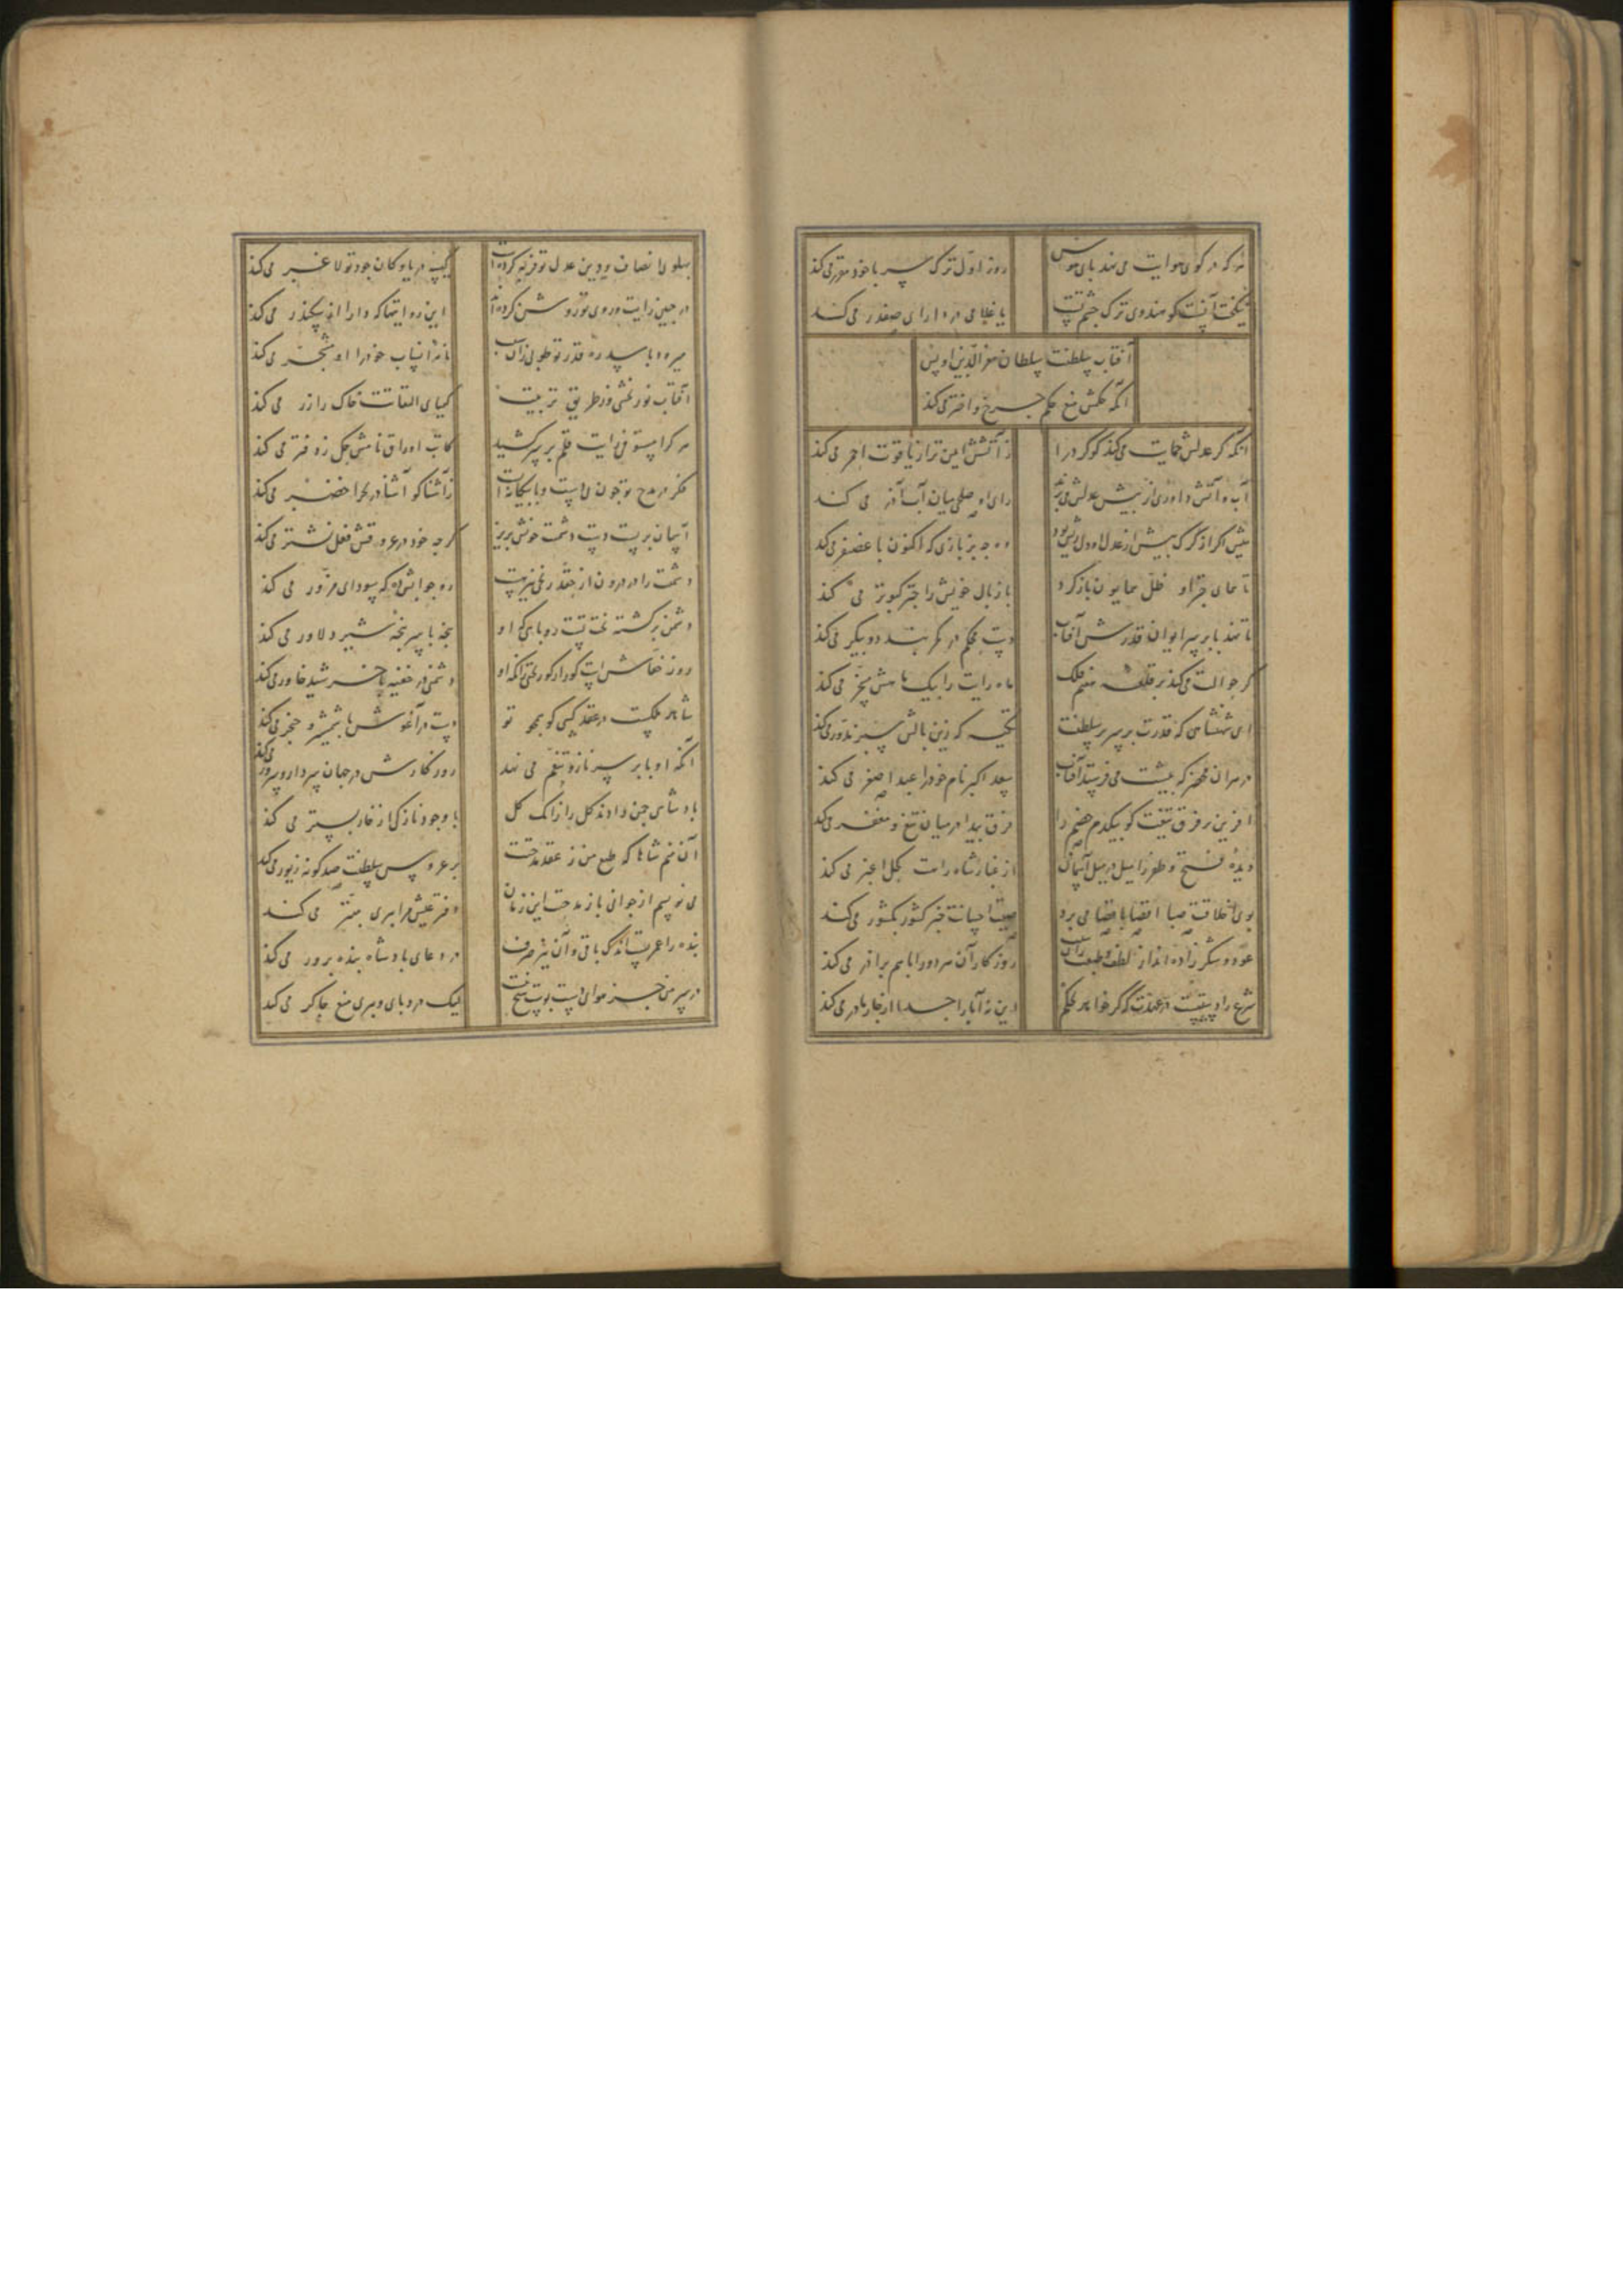 هر که در کوی هوایت می نهد پای هوس
روز اول ترک سر با خود مقرر می کند
نیکبخت آنست کو هندوی ترک چشم تست
یا غلامی در دارای صفدر می کند
آفتاب سلطنت سلطان معز الدین اویس
آنکه حکمش منع حکم چرخ و اختر می کند
آنکه گر عدلش حمایت می کند گوگرد را
ز آتشش ایمن تر از یاقوت احمر می کند
آب و آتش داوری از پیش عدلش می برند
رای او صلحی میان آب آذر می کند
میش اگر از گرگ پیش از عدل او دل ریش بود
ده چه بز بازی که اکنون با غضنفر می کند
تا همای چتر او ظل همایون باز کرد
باز بال خویش را چتر کبوتر می کند
تا نهد پا بر سر ایوان قدرش آفتاب
دست محکم در کمر بند دو پیکر می کند
گر حوالت می کند بر قلعه هفتم فلک
ماه رایت را بیک ماهش مسخر می کند
ای شهنشاهی که قدرت بر سریر سلطنت
تکیه که زین بالش سبز مدور می کند
در هر آن محضر که پیشت می فرستد آفتاب
سعد اکبر نام خود را عبد اصغر می کند
آفرین بر فرق تیغت کو بیکدم خصم را
فرق پیدا در میان تیغ و مغفر می کند
دیده فتح و ظفر را میل در میل آسمان
از غبار شاه راهت کحل اغبر می کند
بوی اخلاقت صبا اقصا باقصا می برد
صیت احسانت خبر کشور بکشور می کند
عود و شکر زاده اند از لطف و طبعت زان سبب
روزگار آن هر دو را با هم برابر می کند
شرع را دستیست در عهدت که گر خواهد بحکم
این نه آبا را جدا از چار مادر می کند
پهلوی انصاف و دین عدل تو فربه کرده است
کیسه دریا و کان جود تو لاغر می کند
در جبین رایت و روی تو روشن کرده است
این روایتها که دارا از سکندر می کند
میرود با سدره قدر تو طوبی زان سبب
تا نه انساب خود را او مشجر می کند
آفتاب نور بخشی وز طریق تربیت
کیمیای التفاتت خاک را زر می کند
هر کرا مستوفی رایت قلم بر سر کشید
کاتب اوراق نامش حک ز دفتر می کند
فکر در مدح تو چون می ایستد و با بیگانه است
ز آشنا کو آشنا در بحر اخضر می کند
آسمان بر بست دست دشمنت خونش بریز
گرچه خود در عروقش فعل نشتر می کند
دشمنت را در درون از حقد رنجی نیز هست
ره جوابش ده که سودای مزور می کند
دشمن برگشته بخت تست روباهی که او
پنجه با سر پنجه شیر دلاور می کند
روز خفاش است کور ار کور بختی زانکه او
دشمنی در خفیه با خورشید خاور می کند
شاهد ملکست در عقد کسی کو همچو تو
دست در آغوش با شمشیر و خنجر می کند
آنکه او پا بر سر ناز و تنعم می نهد
روزگارش در جهان سردار و سرور می کند
پادشاهی چمن دادند گل را زانک گل
با وجود نازکی از خار بستر می کند
آن منم شاها که طبع من ز عقد مدحتت
بر عروس سلطنت صد گونه زیور می کند
می نویسم از جوانی باز مدحت این زمان
دفتر عیشم را پیری مبتر می کند
بنده را عمریست اندک باقی و آن نیز صرف
در دعای پادشاه بنده پرور می کند
در سر من جز هوای دست بوست نیست هیچ
لیک درد پای و پیری منع چاکر می کند